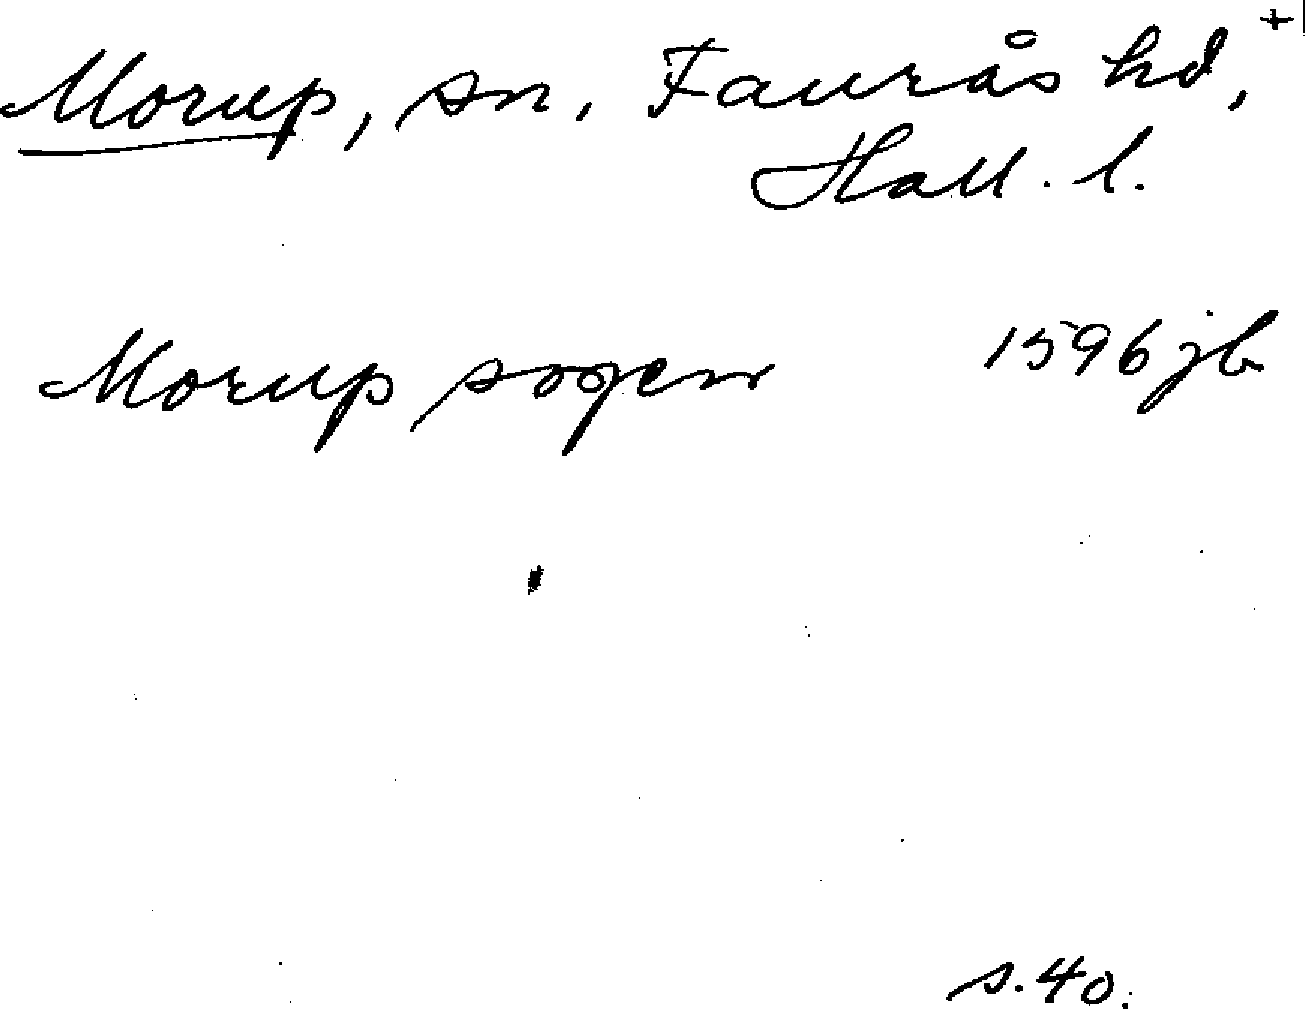 Morup, sn. Faurås hd, +
Hall. l.
Morup sogen 1596 jb
s. 40.